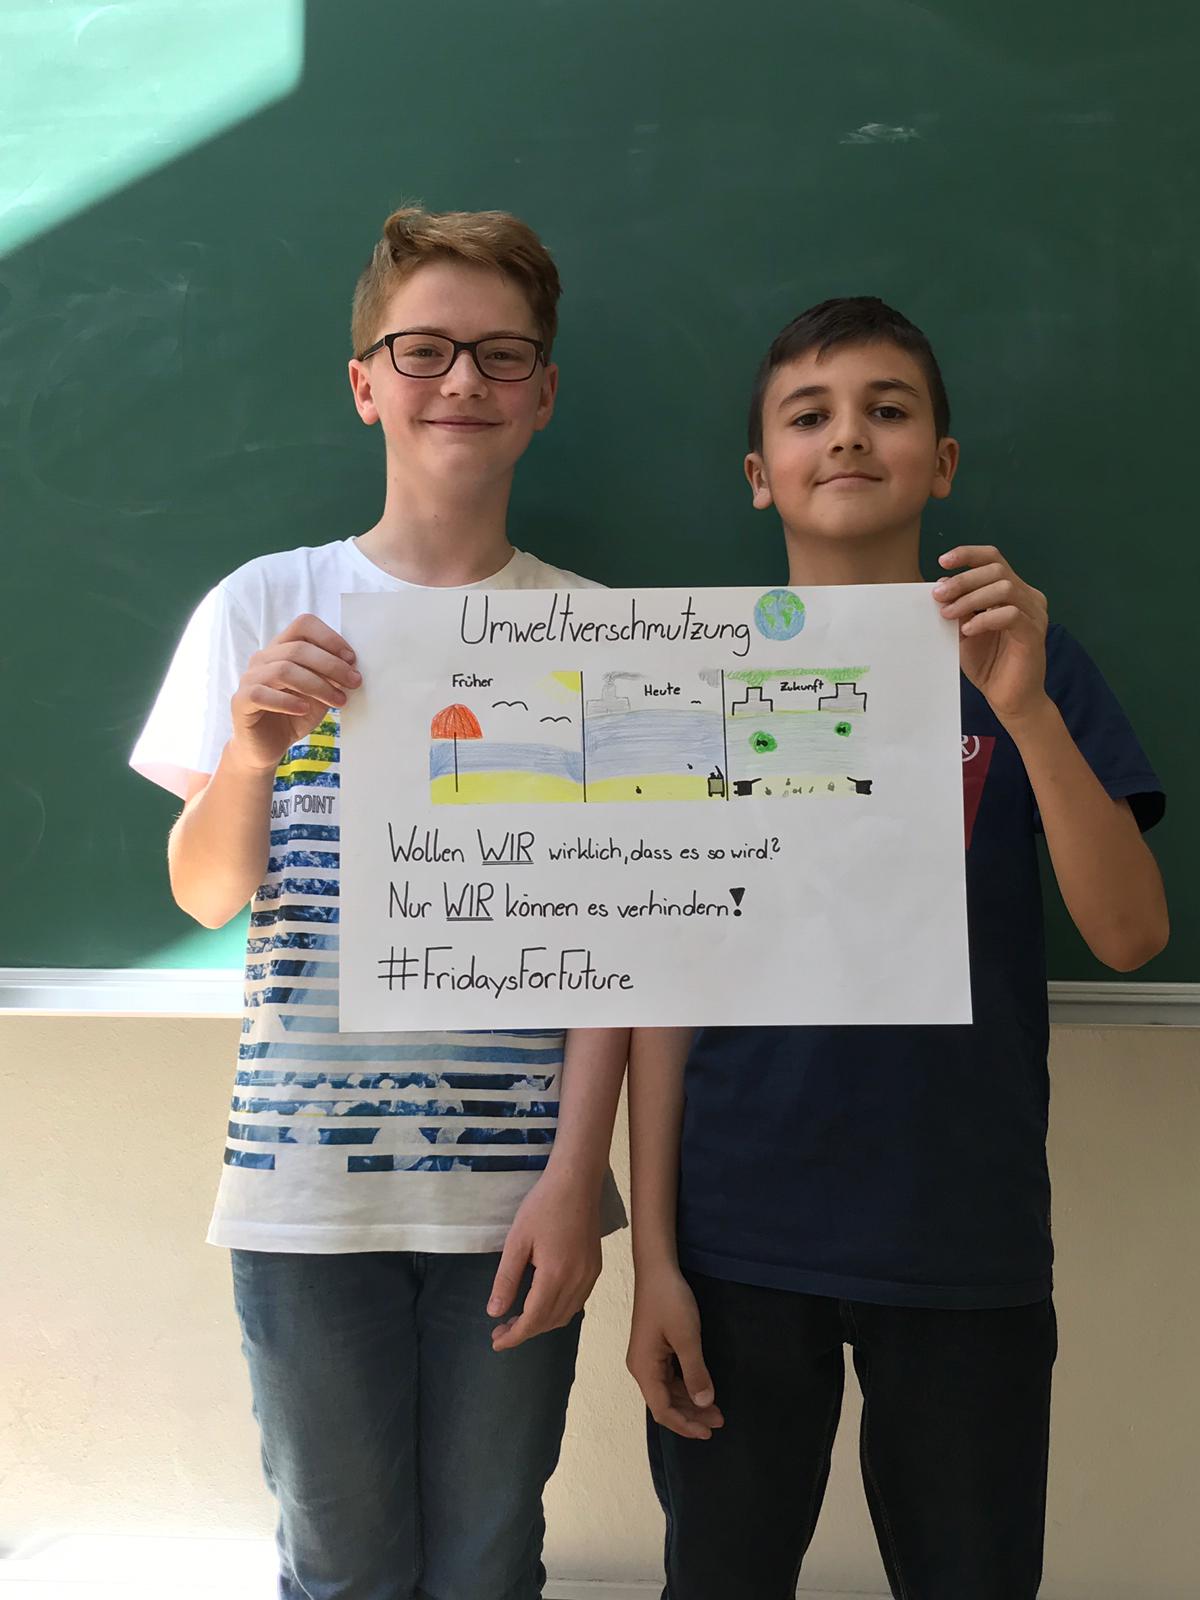 Umweltverschmutzung
Früher
Heute
Zukunft
Wollen WIR wirklich, dass es so wird?
Nur WIR können es verhindern!
#FridaysForFuture
POINT
®